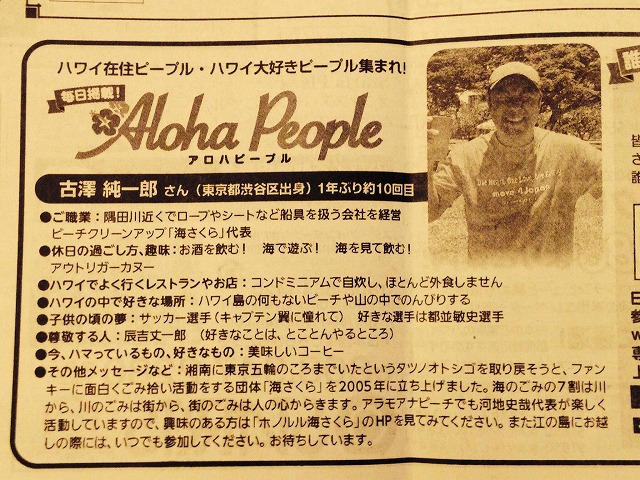 ハワイ在住ピープル・ハワイ大好きピープル集まれ!
毎日掲載!
Aloha People
アロハピープル
古澤 純一郎 さん (東京都渋谷区出身) 1年ぶり約10回目
●ご職業:隅田川近くでロープやシートなど船具を扱う会社を経営
ビーチクリーンアップ「海さくら」代表
●休日の過ごし方、趣味:お酒を飲む! 海で遊ぶ! 海を見て飲む!
アウトリガーカヌー
●ハワイでよく行くレストランやお店:コンドミニアムで自炊し、ほとんど外食しません
●ハワイの中で好きな場所:ハワイ島の何もないビーチや山の中でのんびりする
●子供の頃の夢:サッカー選手(キャプテン翼に憧れて) 好きな選手は都並敏史選手
●尊敬する人:辰吉丈一郎 (好きなことは、とことんやるところ)
●今、ハマっているもの、好きなもの:美味しいコーヒー
●その他メッセージなど:湘南に東京五輪のころまでいたというタツノオトシゴを取り戻そうと、ファン
キーに面白くごみ拾い活動をする団体「海さくら」を2005年に立ち上げました。海のごみの7割は川
から、川のごみは街から、街のごみは人の心からきます。アラモアナビーチでも河地史哉代表が楽しく
活動していますので、興味のある方は「ホノルル海さくら」のHPを見てみてください。また江の島にお越
しの際には、いつでも参加してください。お待ちしています。
move 4 Japan